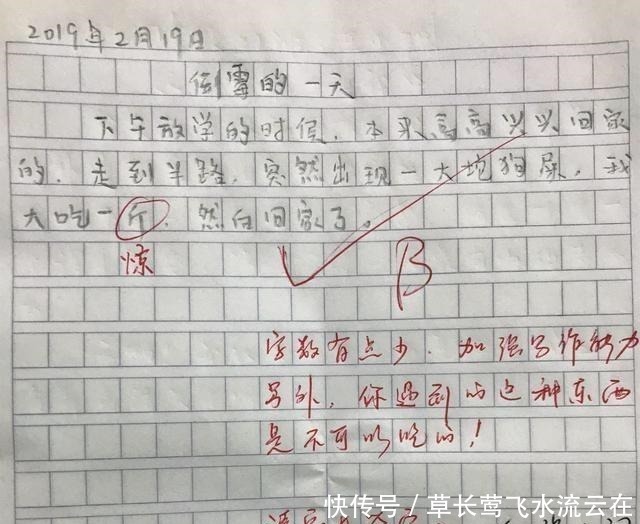 2019年2月19日
倒霉的一天
下午放学的时候，本来高高兴兴回家
的，走到半路，突然出现一大坨狗屎，我
大吃一斤，然后回家了。
惊
B
字数有点少，加强写作能力
另外，你遇到的这种东西
是不可以吃的！
快传号/草长莺飞水流云在